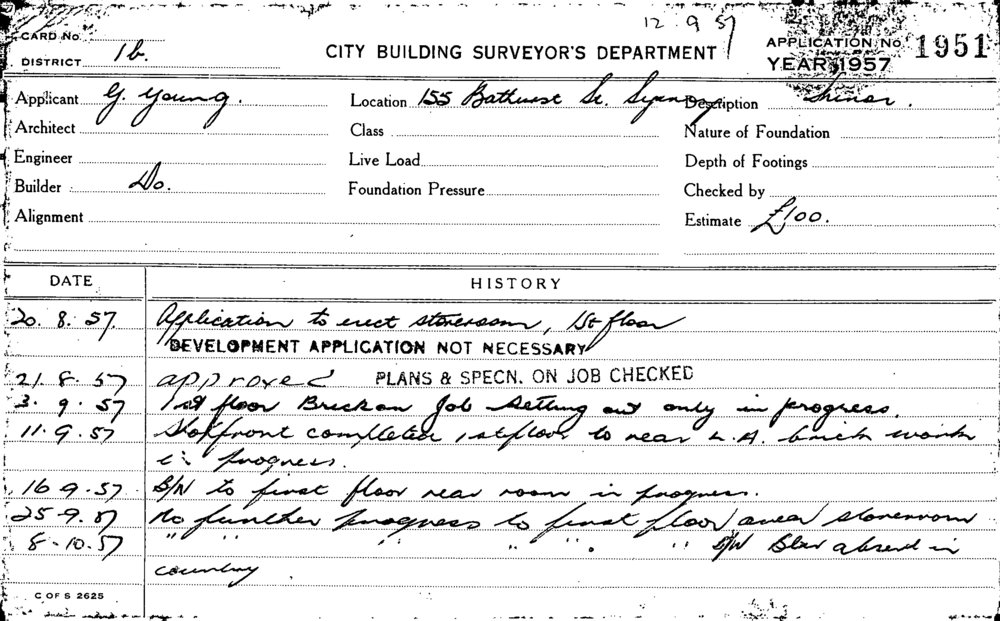 12.9.57
CARD No.
DISTRICT 1b.
CITY BUILDING SURVEYOR'S DEPARTMENT
APPLICATION No. 1951
YEAR 1957
Applicant G. Young. Location 155 Bathurst St. Sydney Description Minor.
Architect Class Nature of Foundation
Engineer Live Load Depth of Footings
Builder Do. Foundation Pressure Checked by
Alignment Estimate £100.
DATE HISTORY
20. 8. 57. Application to erect storeroom, 1st floor
DEVELOPMENT APPLICATION NOT NECESSARY
21. 8. 57 approved PLANS & SPECN. ON JOB CHECKED
3. 9. 57 1st floor Brick on Job setting out only in progress.
11. 9. 57 Shopfront completed, 1st floor to rear L.H. brick work
in progress.
16 9. 57 B/W to first floor rear room in progress.
25-9. 57 No further progress to first floor area storeroom
8-10. 57 " " " " " B/W Bldr absent in
country
C OF S 2625